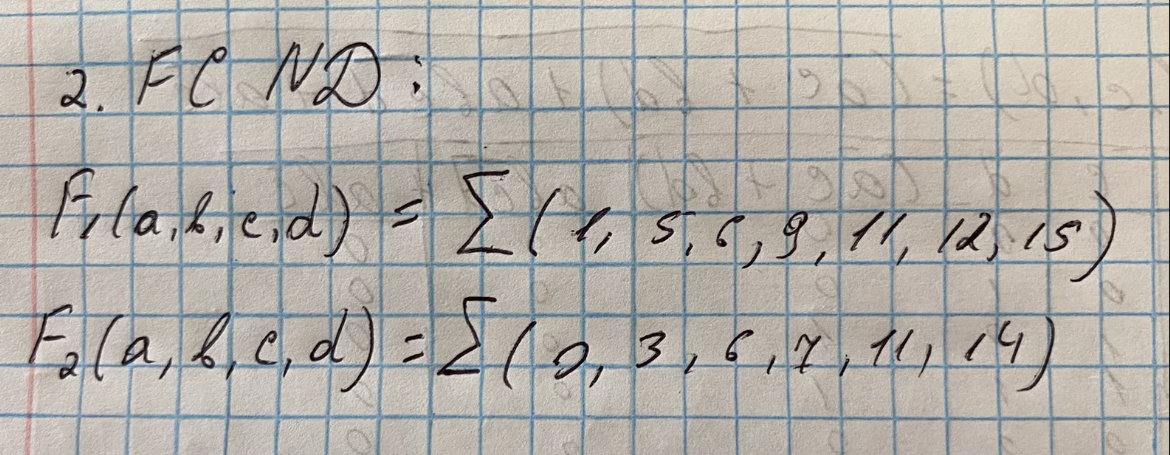 2. FC ND:
F₁(a,b,c,d) = Σ(1, 5, 6, 9, 11, 12, 15)
F₂(a,b,c,d) = Σ(0, 3, 6, 7, 11, 14)